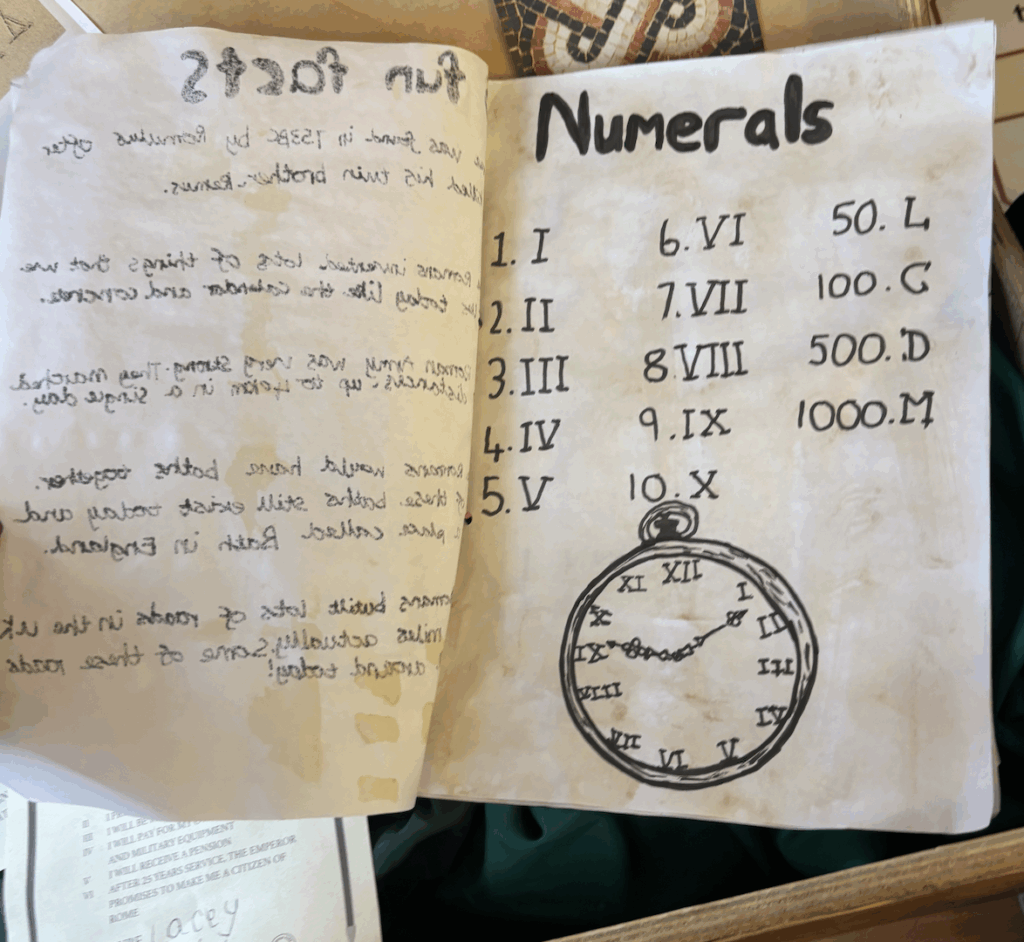 fun facts
was found in 753BC by Romulus after
his twin brother Remus.
Romans invented lots of things that we
today like the calendar and concrete.
Roman Army was very strong. They marched
distances up to in a single day.
Romans would have baths together.
of these baths still exist today and
place called Bath in England.
built lots of roads in the UK
miles actually. Some of these roads
around today!
Numerals
1. I
2. II
3. III
4. IV
5. V
6. VI
7. VII
8. VIII
9. IX
10. X
50. L
100. C
500. D
1000. M
XII
I
II
III
IV
V
VI
VII
VIII
IX
X
XI
II
III I WILL
IV I WILL PAY FOR MY
AND MILITARY EQUIPMENT
V I WILL RECEIVE A PENSION
VI AFTER 25 YEARS SERVICE, THE EMPEROR
PROMISES TO MAKE ME A CITIZEN OF
ROME